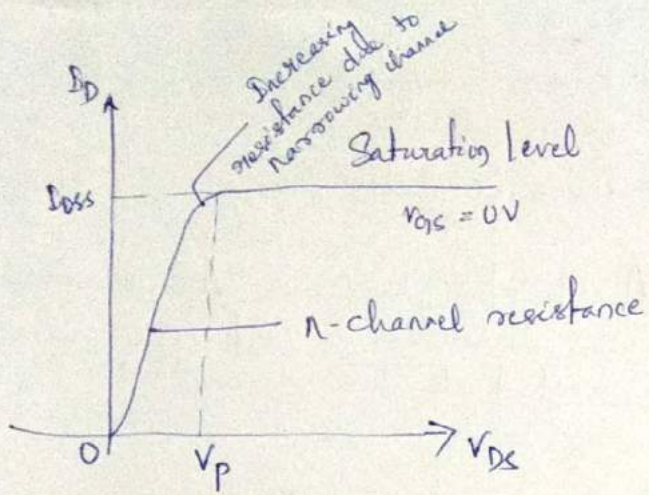 Increasing
resistance due to
narrowing channel
I_D
Saturation level
I_DSS
V_GS = 0V
n-channel resistance
0
V_P
V_DS